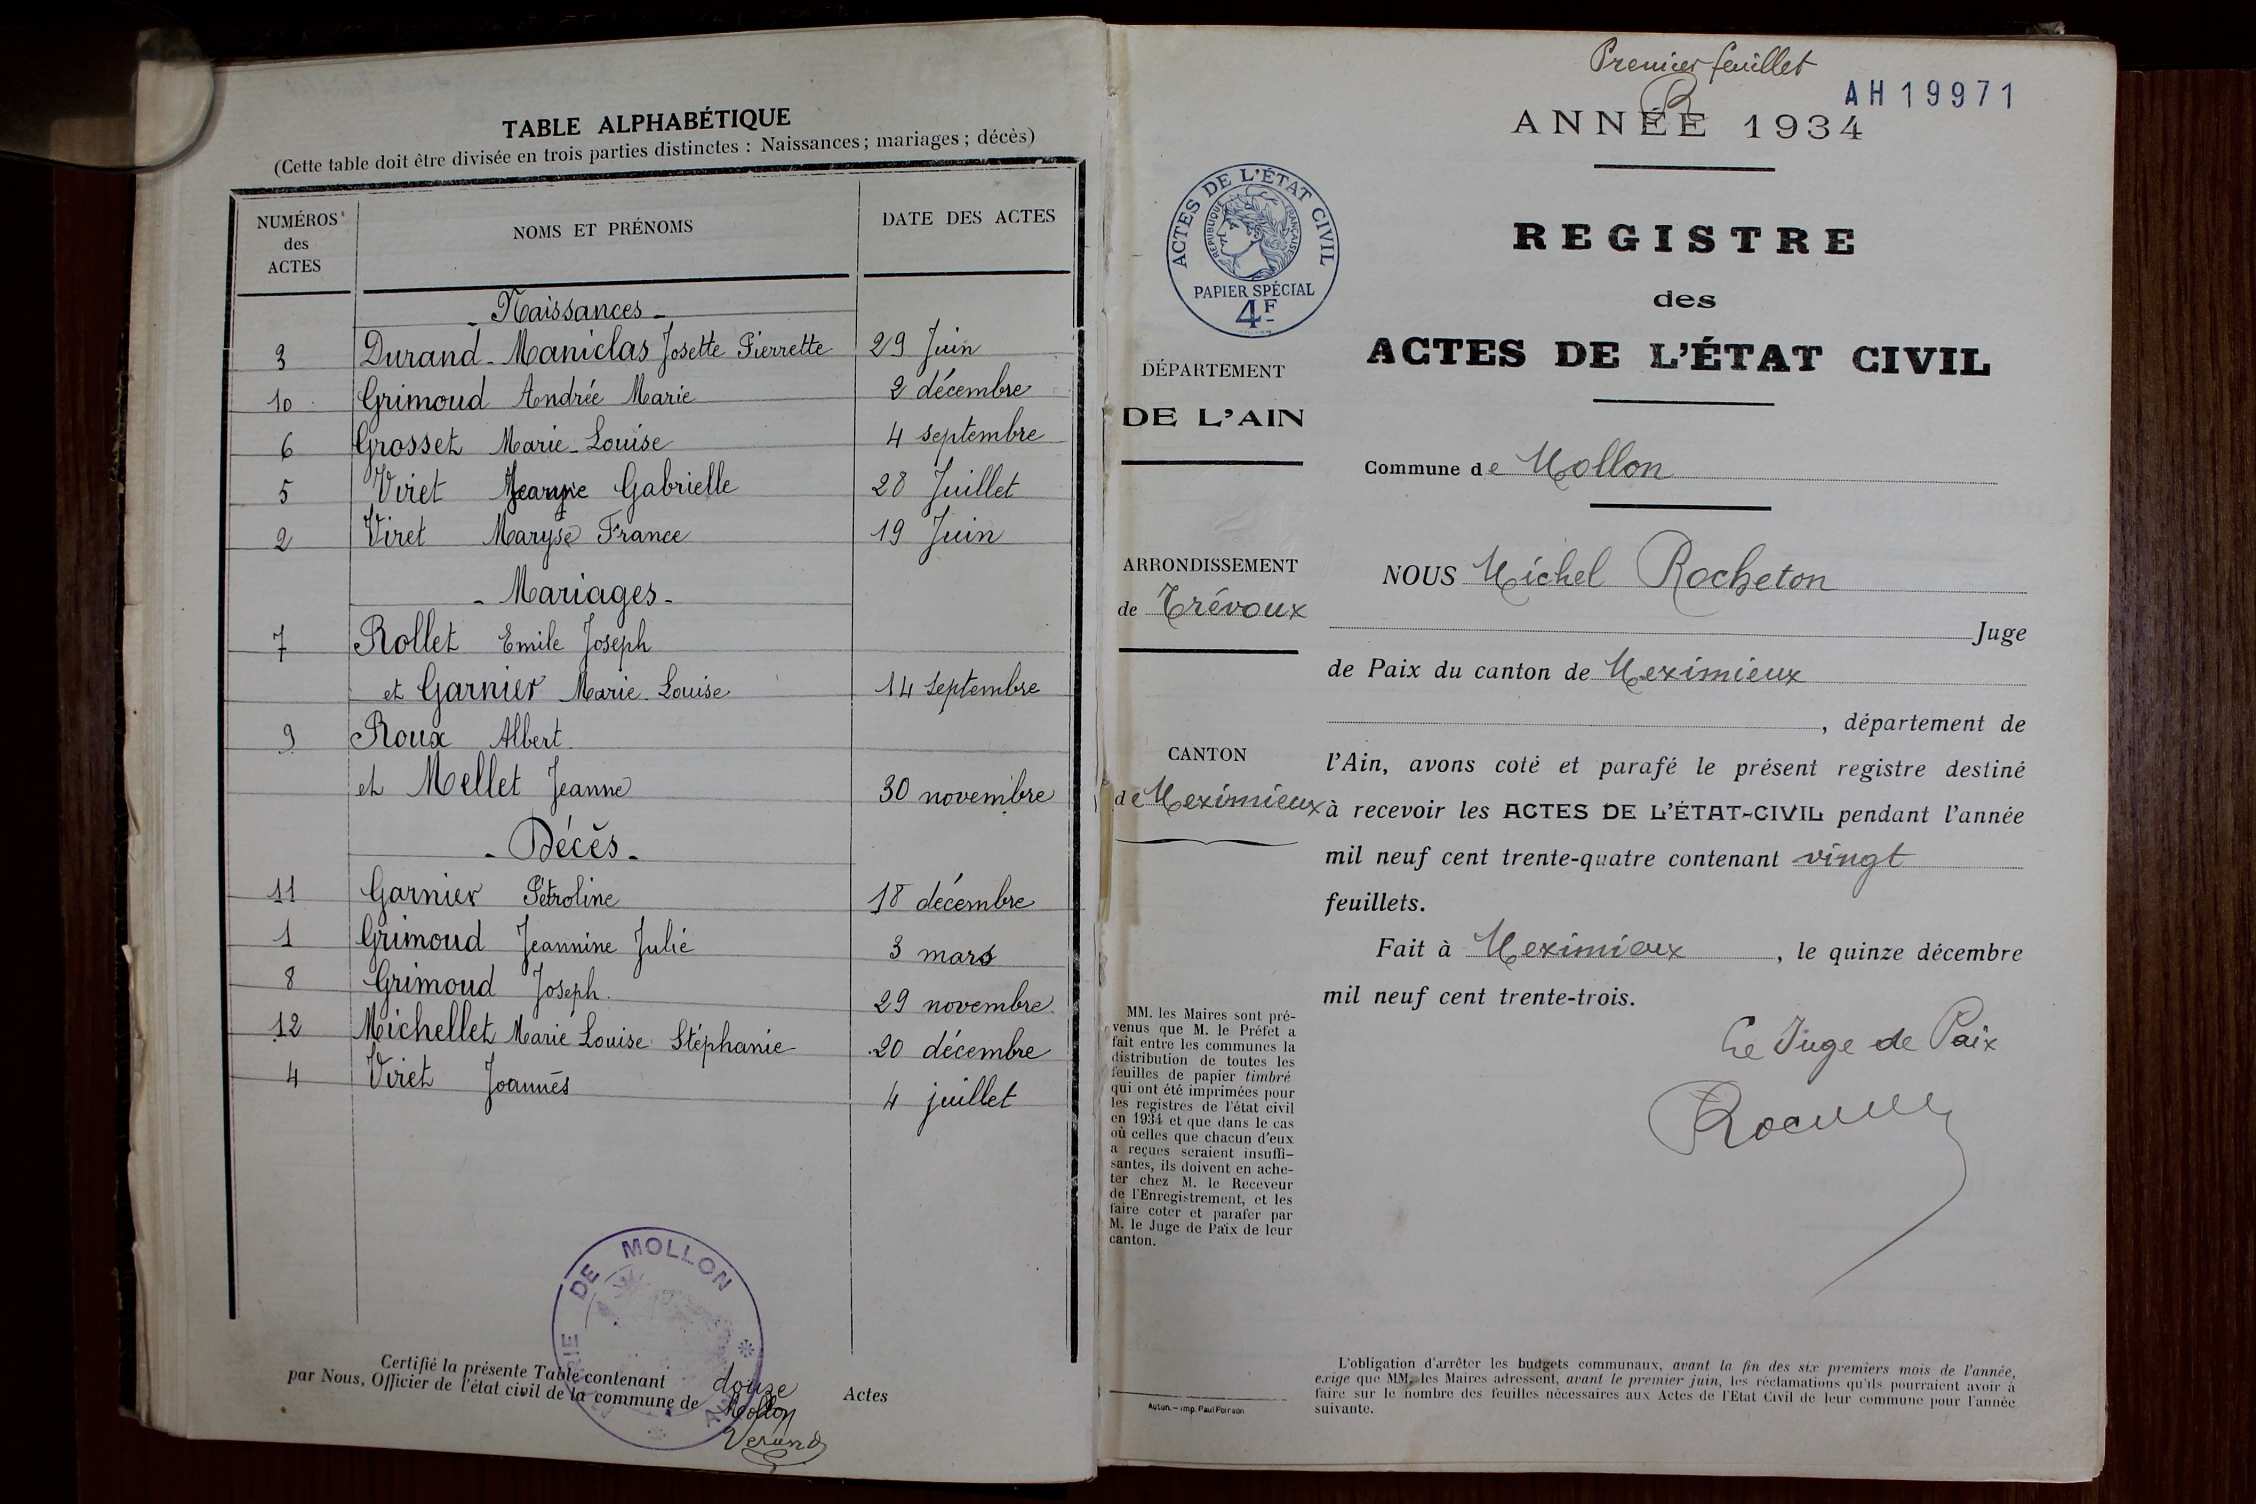 TABLE ALPHABÉTIQUE
(Cette table doit être divisée en trois parties distinctes : Naissances ; mariages ; décès)
NUMÉROS des ACTES NOMS ET PRÉNOMS DATE DES ACTES
- Naissances -
3 Durand-Maniclas Josette Pierrette 29 Juin
10 Grimoud Andrée Marie 2 décembre
6 Grosset Marie-Louise 4 septembre
5 Viret Gabrielle 28 Juillet
2 Viret Maryse France 19 Juin
- Mariages -
7 Rollet Emile Joseph
et Garnier Marie-Louise 14 septembre
9 Roux Albert
et Mellet Jeanne 30 novembre
- Décès -
11 Garnier Pétroline 18 décembre
1 Grimoud Jeannine Julie 3 mars
8 Grimoud Joseph 29 novembre
12 Michellet Marie Louise Stéphanie 20 décembre
4 Viret Joannès 4 juillet
MAIRIE DE MOLLON
Certifié la présente Table contenant douze Actes
par Nous, Officier de l'état civil de la commune de Mollon
Premier feuillet
AH19971
ANNÉE 1934
ACTES DE L'ÉTAT CIVIL
RÉPUBLIQUE FRANÇAISE
PAPIER SPÉCIAL
4F
REGISTRE
des
ACTES DE L'ÉTAT CIVIL
DÉPARTEMENT
DE L'AIN
Commune de Mollon
ARRONDISSEMENT
de Trévoux
CANTON
de Meximieux
NOUS Michel Rocheton
Juge
de Paix du canton de Meximieux
, département de
l'Ain, avons coté et parafé le présent registre destiné
à recevoir les ACTES DE L'ÉTAT-CIVIL pendant l'année
mil neuf cent trente-quatre contenant vingt
feuillets.
Fait à Meximieux, le quinze décembre
mil neuf cent trente-trois.
Le Juge de Paix
MM. les Maires sont pré-
venus que M. le Préfet a
fait entre les communes la
distribution de toutes les
feuilles de papier timbré
qui ont été imprimées pour
les registres de l'état civil
en 1934 et que dans le cas
où celles que chacun d'eux
a reçues seraient insuffi-
santes, ils doivent en ache-
ter chez M. le Receveur
de l'Enregistrement, et les
faire coter et parafer par
M. le Juge de Paix de leur
canton.
Autun. - Imp. Paul Poirson
L'obligation d'arrêter les budgets communaux, avant la fin des six premiers mois de l'année,
exige que MM. les Maires adressent, avant le premier juin, les réclamations qu'ils pourraient avoir à
faire sur le nombre des feuilles nécessaires aux Actes de l'Etat Civil de leur commune pour l'année
suivante.